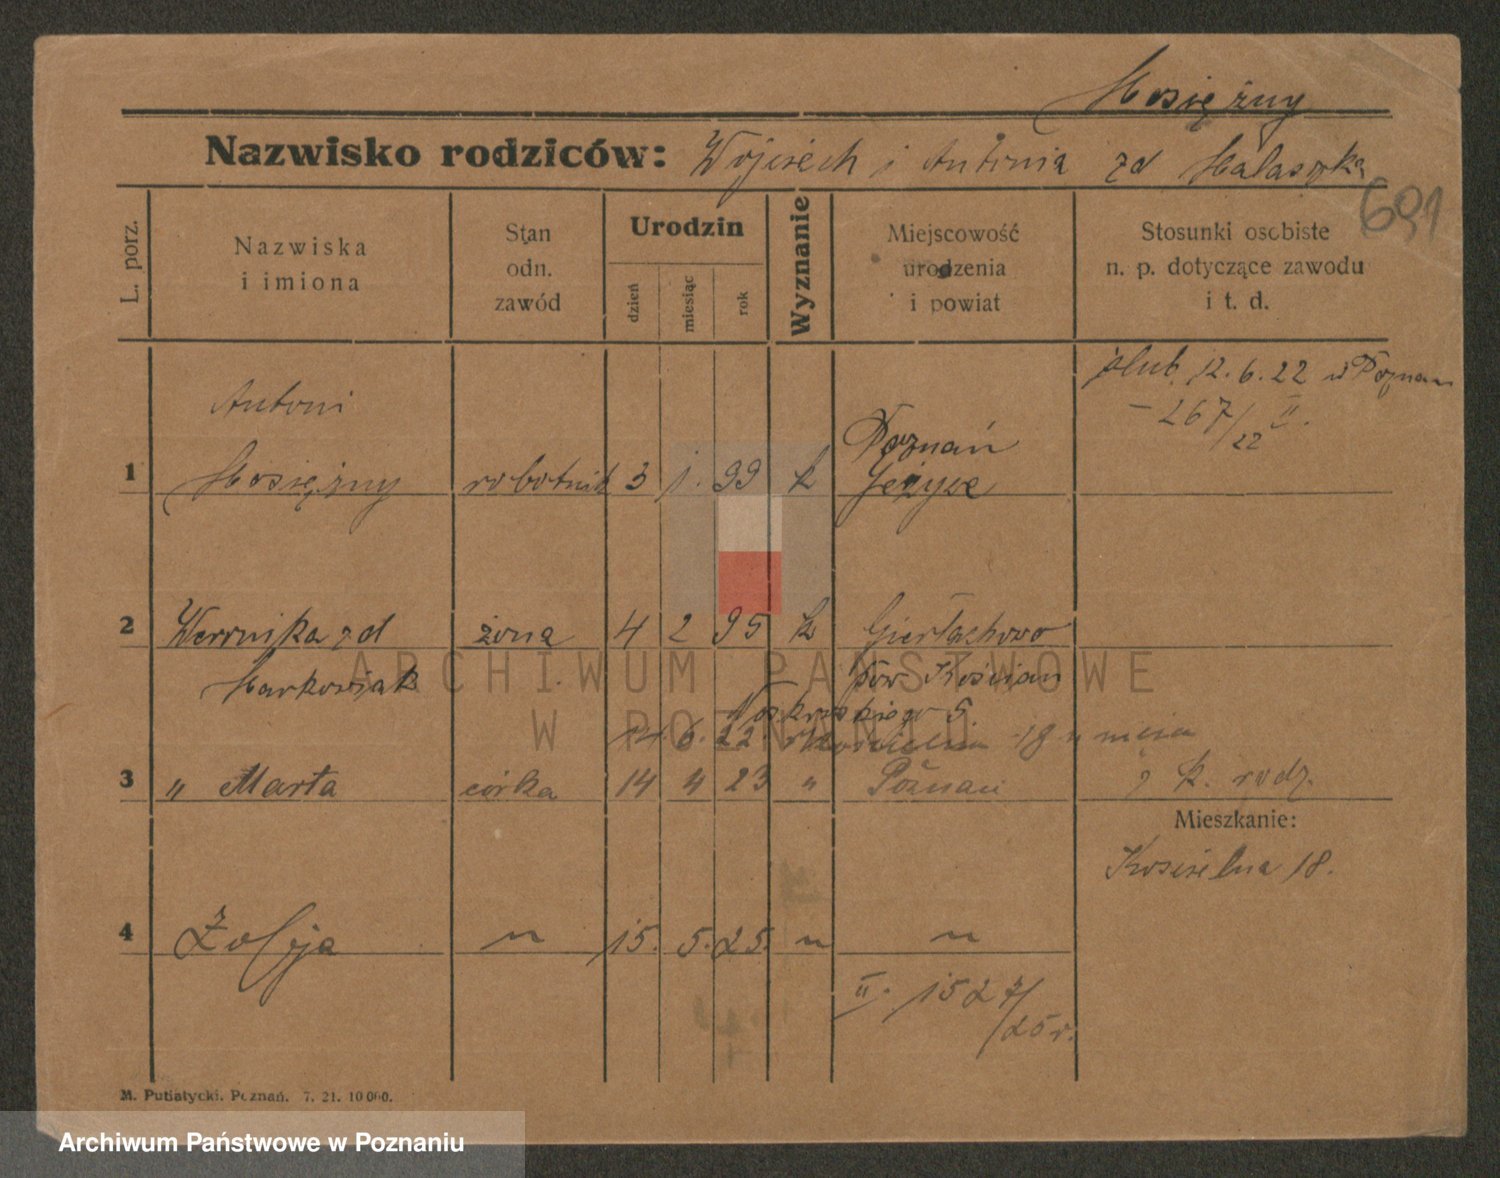 Mosiężny
Nazwisko rodziców: Wojciech i Antonia zd Małaszka
691
L. porz.
Nazwiska i imiona
Stan odn. zawód
Urodzin
dzień
miesiąc
rok
Wyznanie
Miejscowość urodzenia i powiat
Stosunki osobiste n. p. dotyczące zawodu i t. d.
ślub. 12.6.22 w Poznan
- 267/22 II.
Antoni
1 Mosiężny robotnik 3 1. 99 k Poznań Jeżyce
2 Weronika zd żona 4 2 95 k Gierłachowo
Markowiak pow Kościan
14 6. 22. 18 u
3 " Marta córka 14 4 23 " Poznań
k. rodz.
Mieszkanie:
Kościelna 18.
4 Zofja " 15. 5. 25. " "
II. 1527/25 r.
M. Putiatycki. Poznań. 7. 21. 10 000.
ARCHIWUM PAŃSTWOWE
W POZNANIU
Archiwum Państwowe w Poznaniu